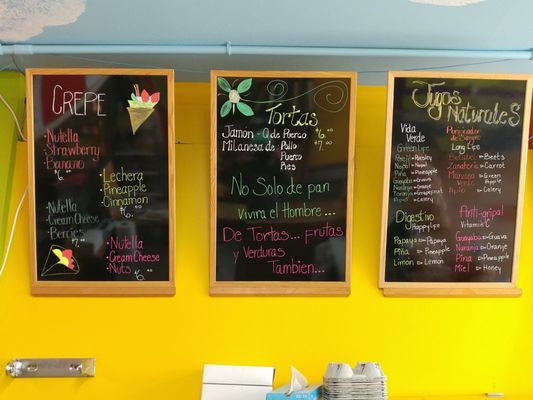 CREPE
·Nutella
Strawberry
Banano
6.00
·Lechera
·Pineapple
·Cinnamon
·Nutella
·Cream Cheese
·Berries
7.00
·Nutella
·Cream Cheese
Nuts
Tortas
Jamon
6.00
Milanesa de: Pollo
7.00
Puerco
Res
No Solo de pan
Vivira el Hombre...
De Tortas... Frutas
y Verduras
Tambien...
Jugos Naturales
Vida
Verde
Green Life
Perejil → Parsley
Nopal → Nopal
Piña → Pineapple
Guayaba → Guava
Naranja → Orange
Toronja
Apio → Celery
Purificador de
Sangre
Long Life
Betabel → Beets
Zanahoria → Carrot
Manzana → Green
Verde
Apple
Apio → Celery
Digestivo
Happy Life
Papaya → Papaya
Piña → Pineapple
Limon → Lemon
Anti-gripal
Vitamin C
Guayaba → Guava
Naranja → Orange
Piña → Pineapple
Miel → Honey